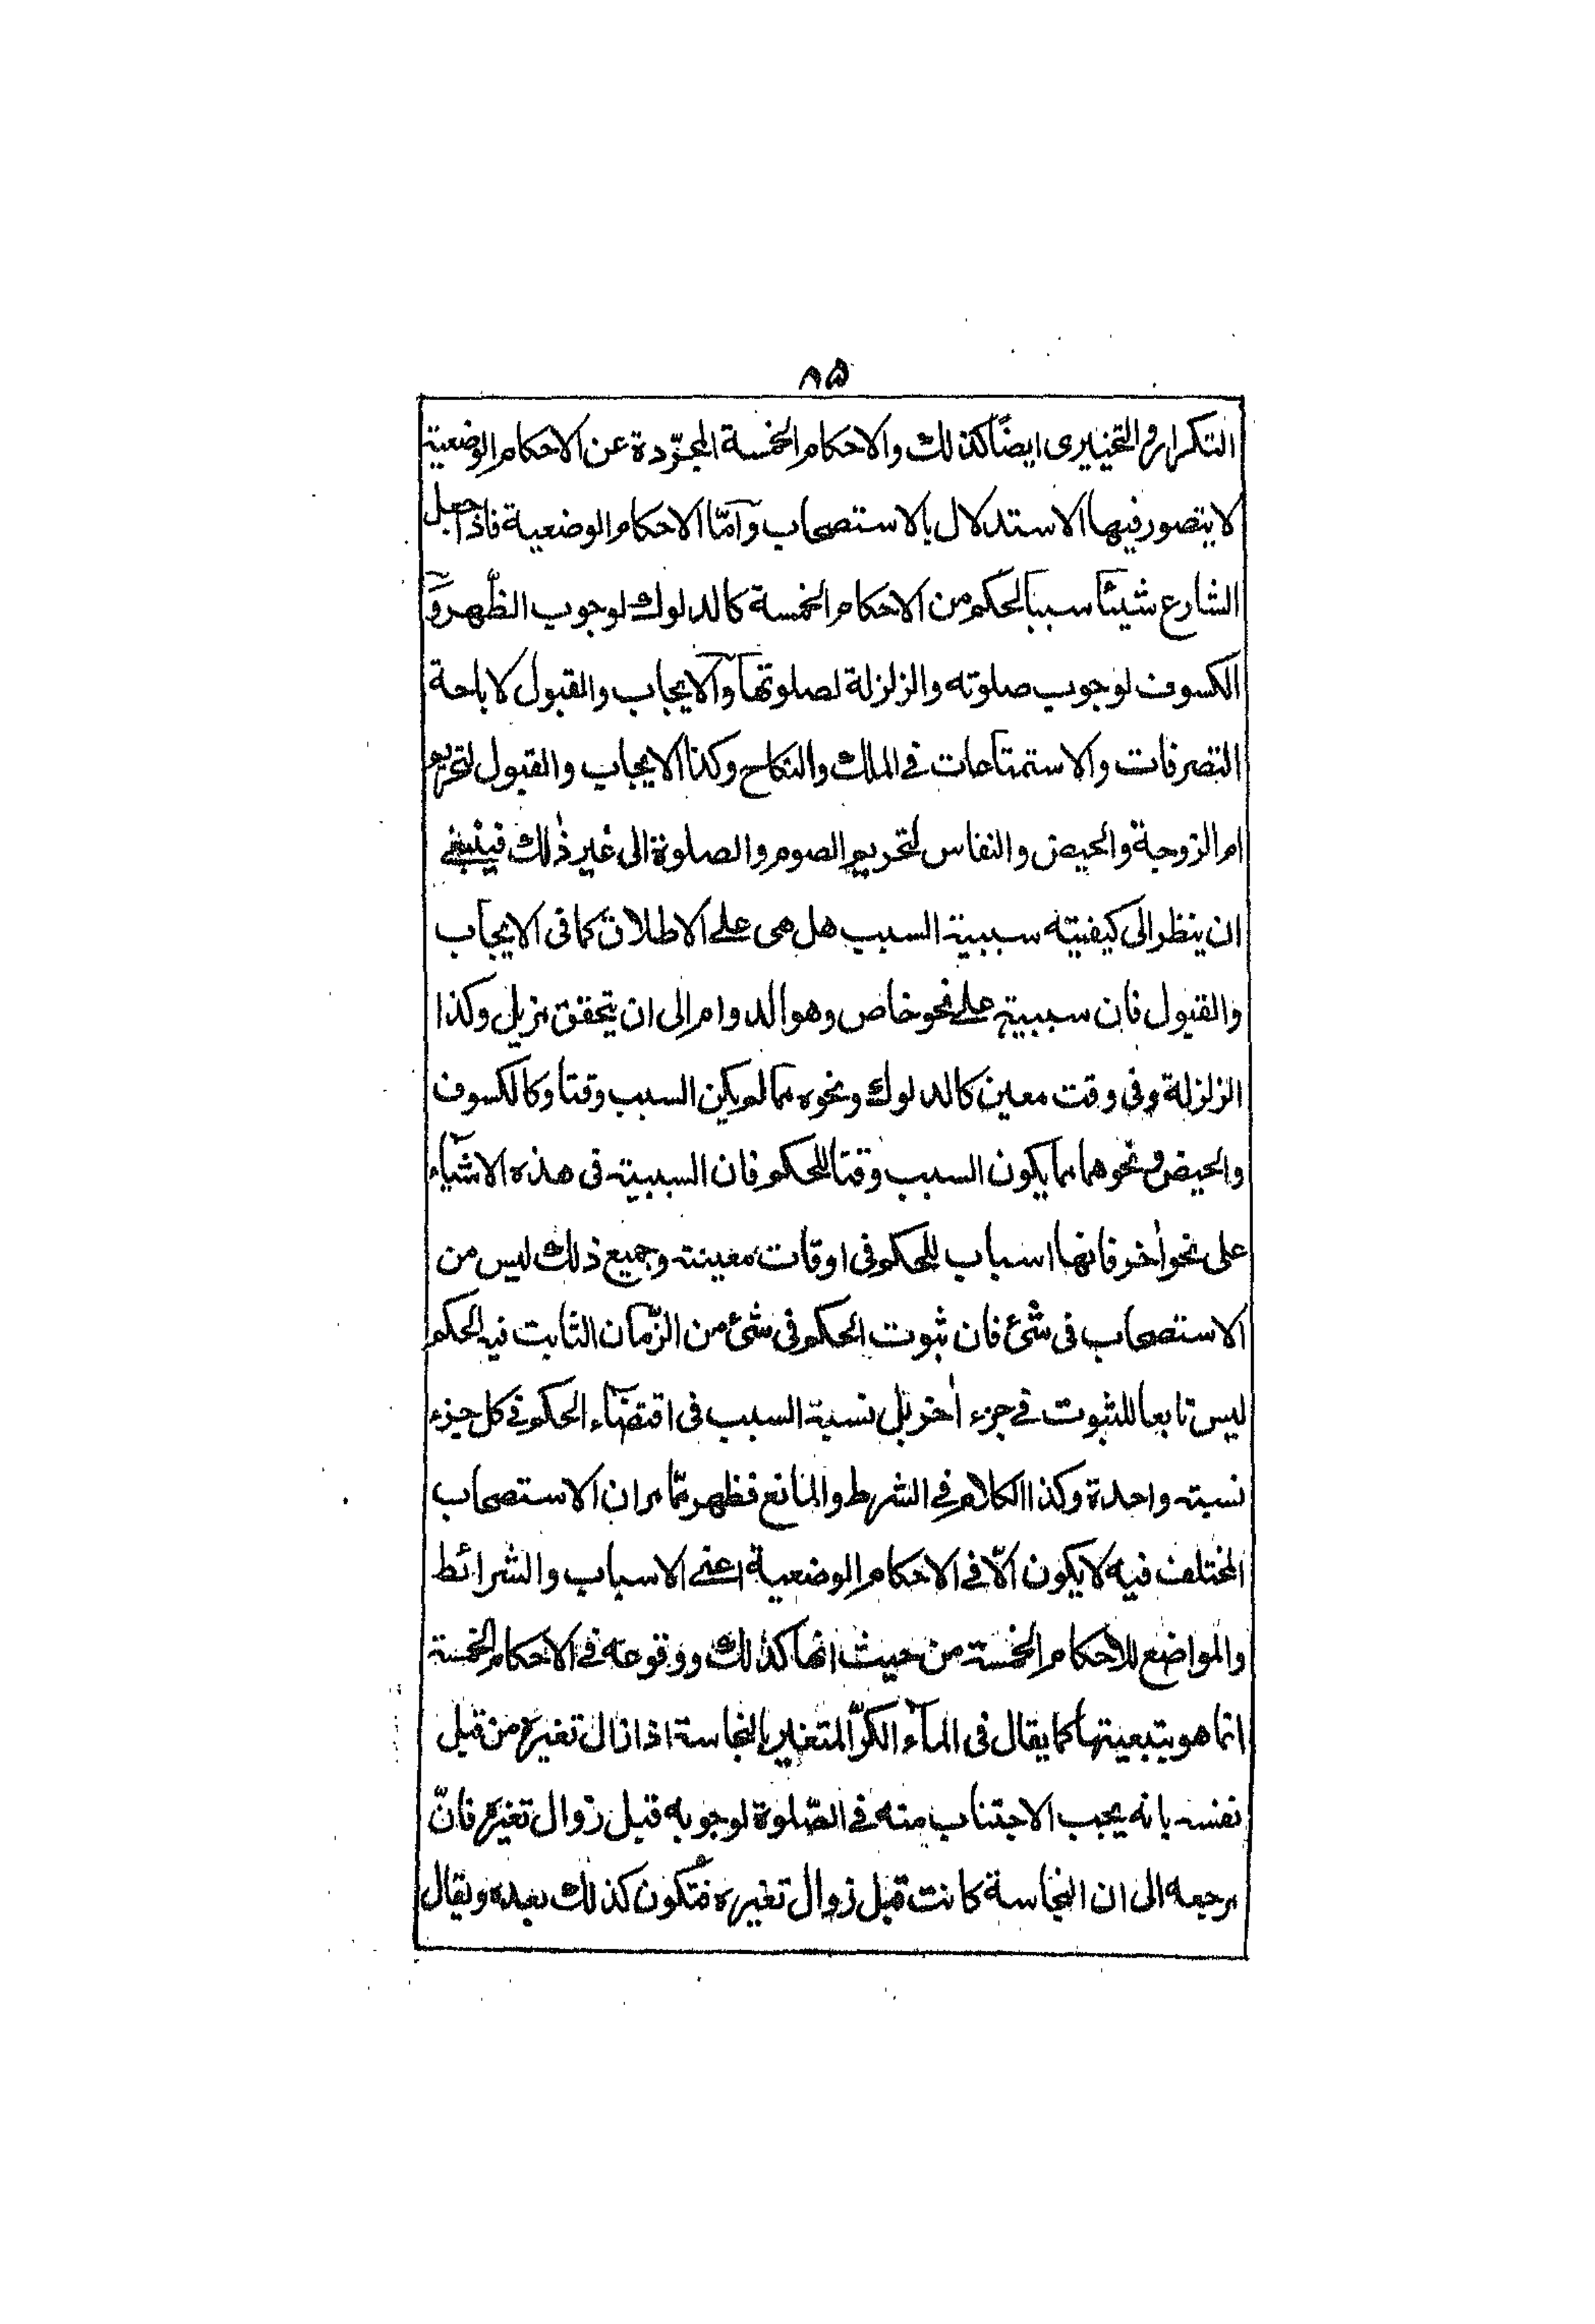 ٨٥
التكرار والتخييرى ايضاً كذلك والاحكام الخمسة المجرّدة عن الاحكام الوضعية
لا يتصور فيها الاستدلال بالاستصحاب وامّا الاحكام الوضعية فاذا جعل
الشارع شيئاً سببا لحكم من الاحكام الخمسة كالدلوك لوجوب الظّهر و
الكسوف لوجوب صلوته والزلزلة لصلوتها والايجاب والقبول لاباحة
التصرفات والاستمتاعات فى الملك والنكاح وكذا الايجاب والقبول لتحريم
ام الزوجة والحيض والنفاس لتحريم الصوم والصلوة الى غير ذلك فينبغى
ان ينظر الى كيفيته سببية السبب هل هى على الاطلاق كما فى الايجاب
والقبول فان سببية على نحو خاص وهو الدوام الى ان يتحقق مزيل وكذا
الزلزلة وفى وقت معين كالدلوك ونحوه مما لم يكن السبب وقتا وكالكسوف
والحيض ونحوهما مما يكون السبب وقتا للحكم فان السببية فى هذه الاشيآء
على نحو اٰخر فانها اسباب للحكم فى اوقات معينة وجميع ذلك ليس من
الاستصحاب فى شئ فان ثبوت الحكم فى شئ من الزّمان الثابت فيه الحكم
ليس تابعا للثبوت فى جزء اٰخر بل نسبة السبب فى اقتضآء الحكم فى كل جزء
نسبة واحدة وكذا الكلام فى الشرط والمانع فظهر ممّا مر ان الاستصحاب
المختلف فيه لا يكون الّا فى الاحكام الوضعية اعنى الاسباب والشرائط
والمواضع للاحكام الخمسة من حيث انها كذلك ووقوعه فى الاحكام الخمسة
انما هو بتبعيتها كما يقال فى المآء الكرّ المتغير بالنجاسة اذا زال تغيره من قبل
نفسه بانه يجب الاجتناب منه فى الصّلوة لوجوبه قبل زوال تغيره فانّ
مرجعه الى ان النجاسة كانت قبل زوال تغيره فتكون كذلك بعده ويقال